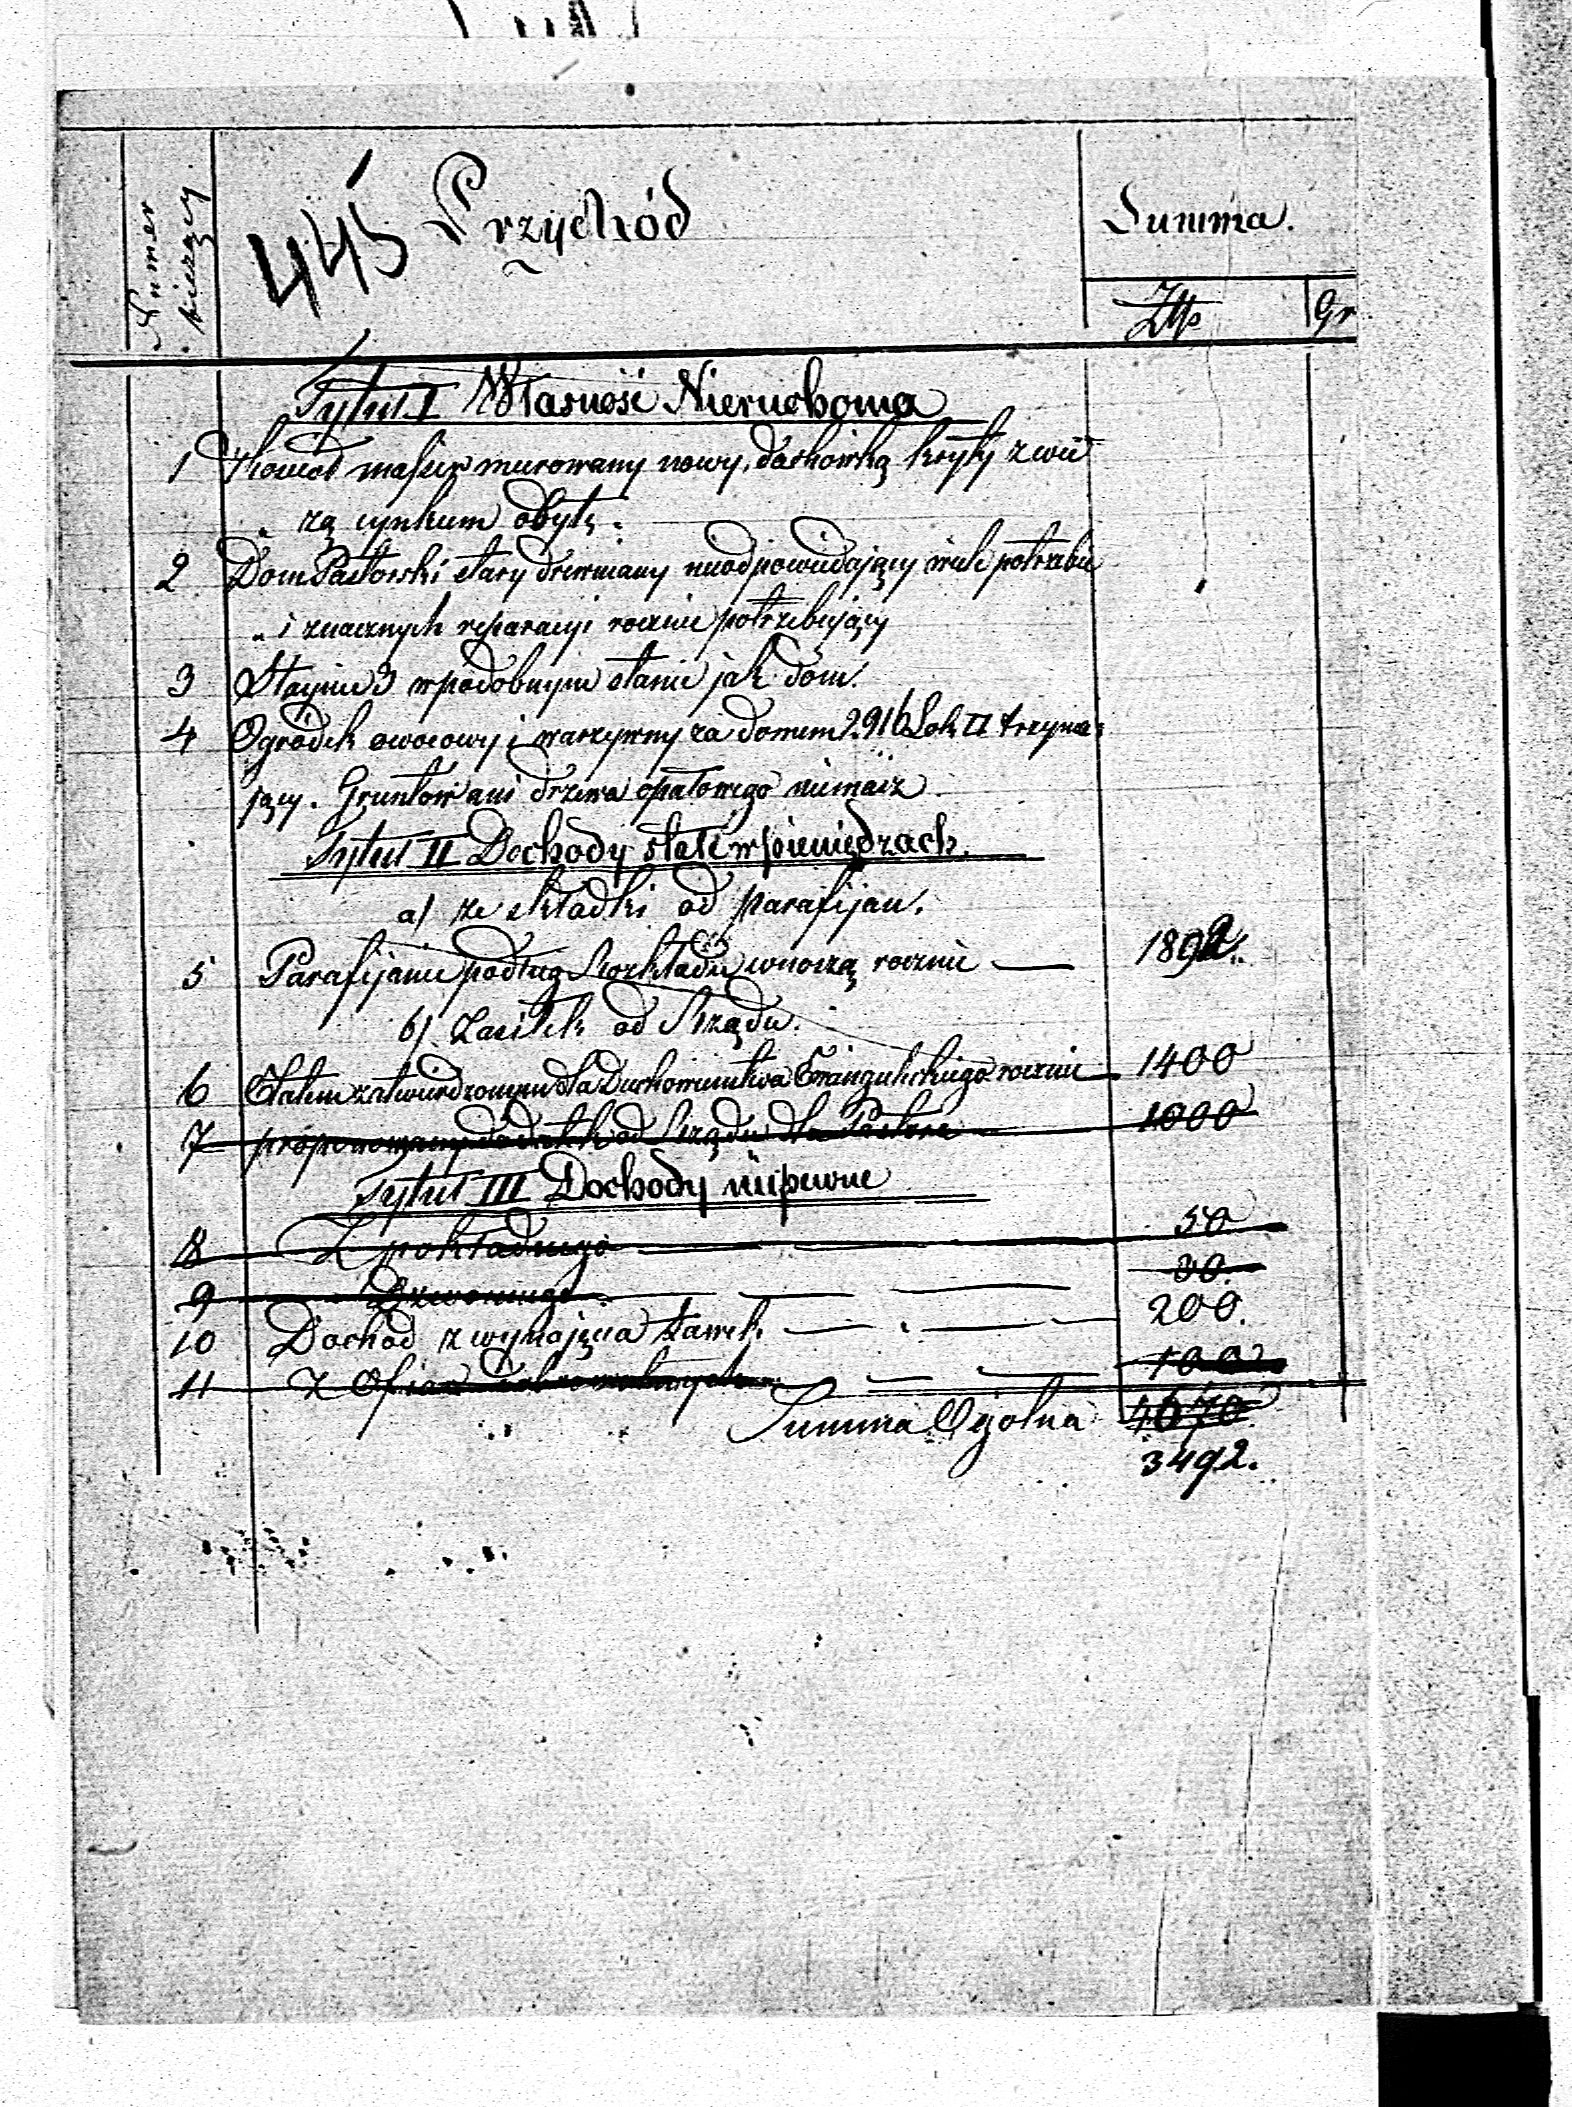 Numer bieżący.
445
Przychód
Summa.
Złp
Gr
Tytuł I Własność Nieruchoma
1 Kościół massiv murowany nowy, dachówką kryty z wie
żą cynkiem obytą.
2 Dom Pastorski stary drewniany nieodpowiadający wiele potrzebie
i znacznych reparacyi rocznie potrzebujący
3 Staynie 3 w podobnym stanie jak dom.
4 Ogródek owocowy i warzywny za domem 2916 Lok II trzyma
jący. Gruntów ani drzewa opałowego niemasz
Tytuł II Dochody stałe w pieniędzach.
a) ze składki od parafijan.
5 Parafijanie podług Rozkładu wnoszą rocznie — 1892.
b) Zasiłek od Rządu.
6 Etatem zatwierdzonym dla Duchowieństwa Ewangelickiego rocznie 1400
7 proponowany dodatek od Rządu dla Pastora 1000
Tytuł III Dochody niepewne
8 Z pokładnego 50
9 Dzwonnego 30.
10 Dochód z wynajęcia Ławek. 200.
11 Z Ofiar dobrowolnych 100
Summa Ogólna 4670
3492.